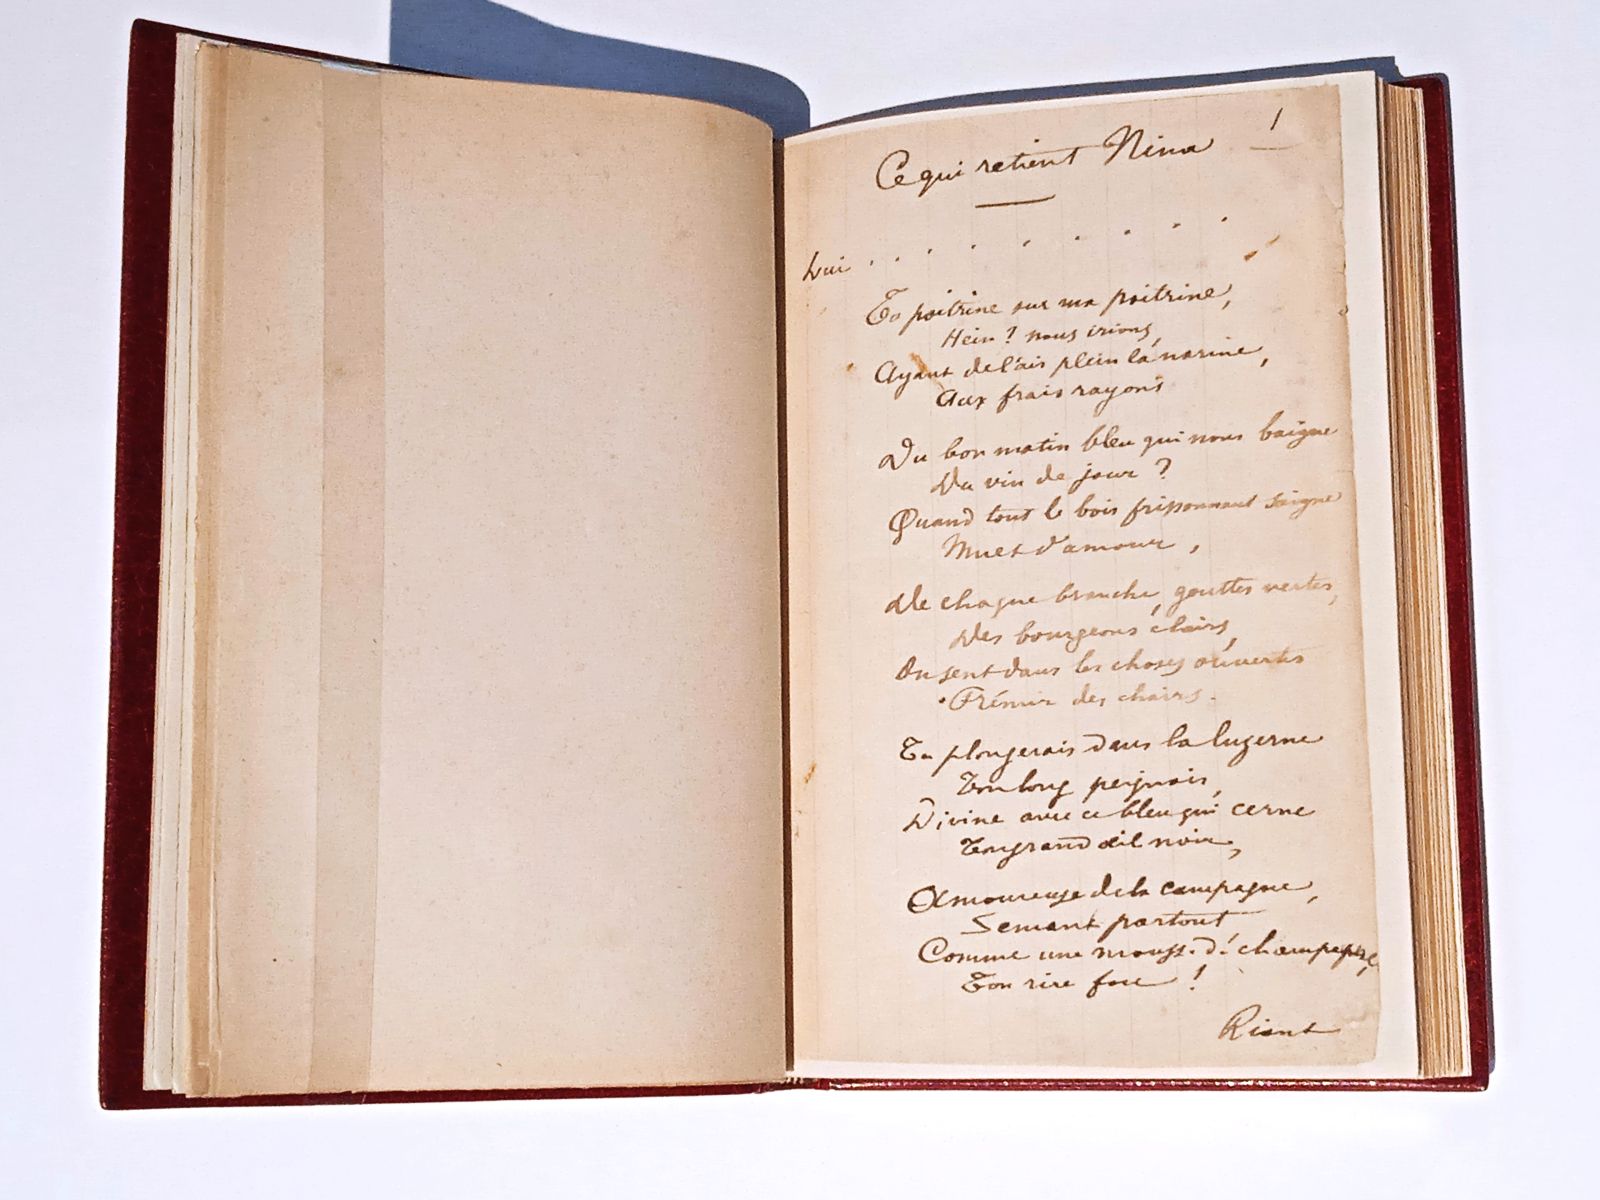 1
Ce qui retient Nina
Lui . . . . . . . .
Ta poitrine sur ma poitrine,
Hein ? nous irions,
Ayant de l'air plein la narine,
Aux frais rayons
Du bon matin bleu qui vous baigne
Du vin de jour ?
Quand tout le bois frissonnant saigne
Muet d'amour,
De chaque branche, gouttes vertes,
Des bourgeons clairs,
On sent dans les choses ouvertes
Frémir des chairs.
Tu plongerais dans la luzerne
Ton long peignoir,
Divine avec ce bleu qui cerne
Ton grand œil noir,
Amoureuse de la campagne,
Semant partout
Comme une mousse de champagne,
Ton rire fou !
Riant